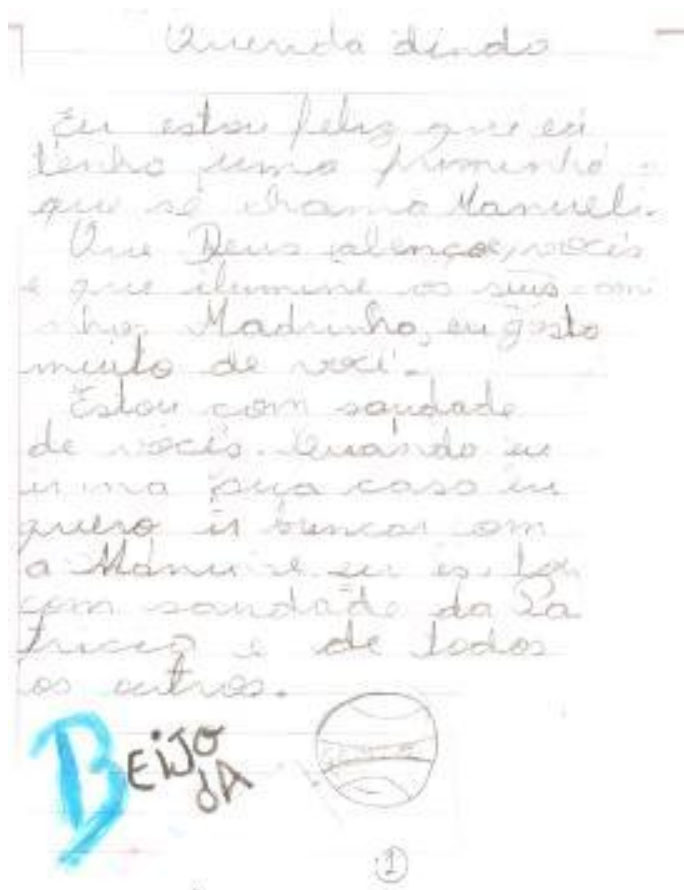 Querida dinda
Eu estou feliz que eu
tenho uma priminha
que se chama Manueli.
Que Deus abençoe vocês
e que ilumine os seus cami
nhos Madrinha, eu gosto
muito de você.
Estou com saudade
de vocês. Quando eu
ir na sua casa eu
quero ir brincar com
a Manu e eu estou
com saudade da Pa
tricia e de todos
os outros.
BEiJO
dA
1